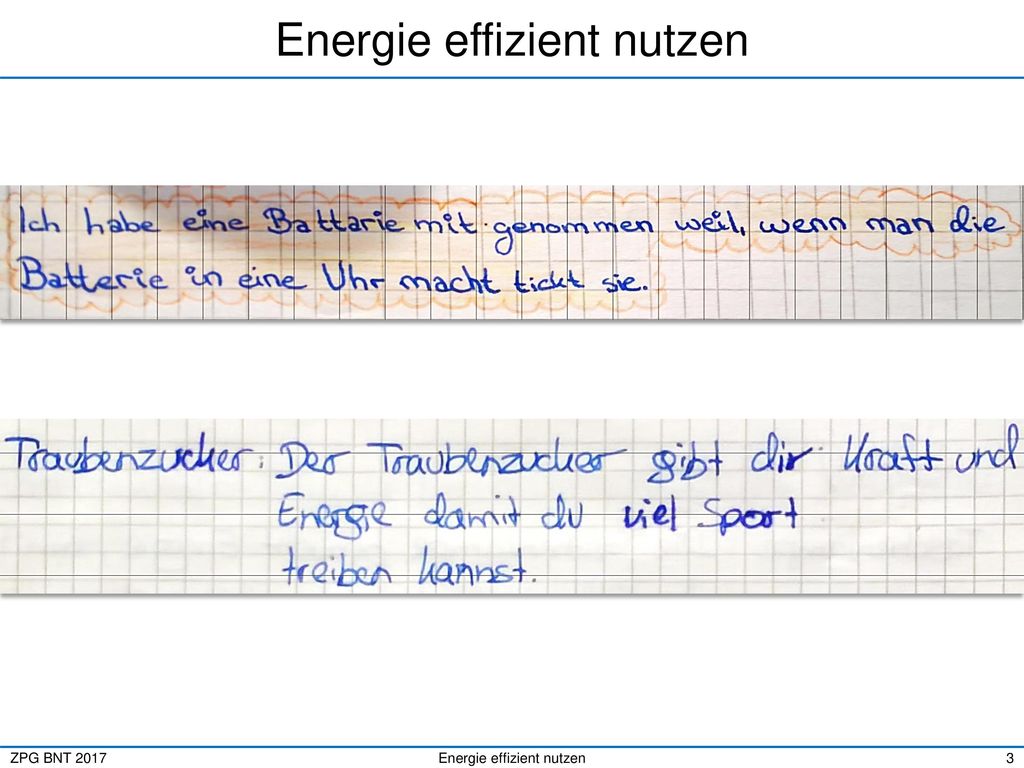 Energie effizient nutzen
Ich habe eine Battarie mit genommen weil, wenn man die
Batterie in eine Uhr macht tickt sie.
Traubenzucker: Der Traubenzucker gibt dir Kraft und
Energie damit du viel Sport
treiben kannst.
ZPG BNT 2017 Energie effizient nutzen 3